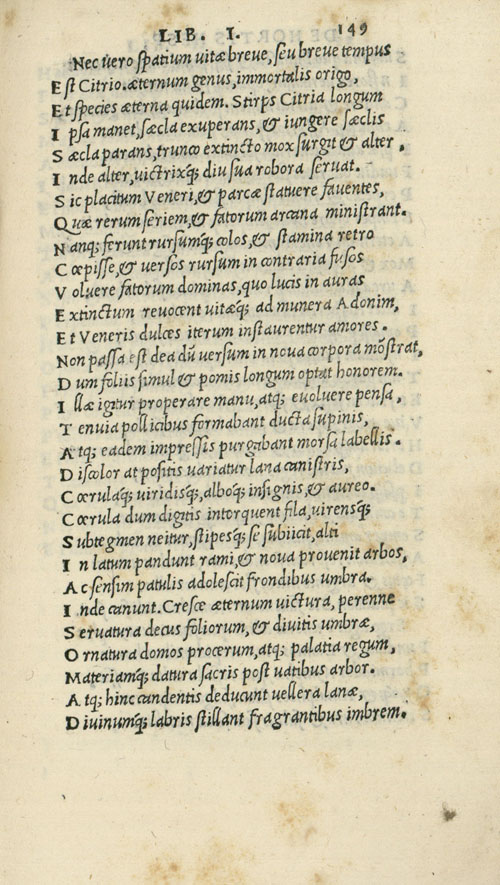 LIB. I. 149
Nec uero spatium uitæ breue, seu breue tempus
Est Citrio. æternum genus, immortalis origo,
Et species æterna quidem. Stirps Citria longum
Ipsa manet, sæcla exuperans, & iungere sæclis
Sæcla parans, trunco extincto mox surgit & alter,
Inde alter, uictrixq; diu sua robora seruat.
Sic placitum Veneri, & parcæ statuere fauentes,
Quæ rerum seriem, & fatorum arcana ministrant.
Nanq; ferunt rursumq; colos, & stamina retro
Cœpisse, & uersos rursum in contraria fusos
Voluere fatorum dominas, quo lucis in auras
Extinctum reuocent uitæq; ad munera Adonim,
Et Veneris dulces iterum instaurentur amores.
Non passa est dea dū uersum in noua corpora mōstrat,
Dum foliis simul & pomis longum optat honorem.
Illæ igitur properare manu, atq; euoluere pensa,
Tenuia pollicibus formabant ducta supinis,
Atq; eadem impressis purgabant morsa labellis.
Discolor at positis uariatur lana canistris,
Cœrulaq; uiridisq; alboq; insignis, & aureo.
Cœrula dum digitis intorquent fila, uirensq;
Subtegmen neitur, stipesq; se subiicit, alti
In latum pandunt rami, & noua prouenit arbos,
Ac sensim patulis adolescit frondibus umbra.
Inde canunt. Cresce æternum uictura, perenne
Seruatura decus foliorum, & diuitis umbræ,
Ornatura domos procerum, atq; palatia regum,
Materiamq; datura sacris post uatibus arbor.
Atq; hinc candentis deducunt uellera lanæ,
Diuinumq; labris stillant fragrantibus imbrem.